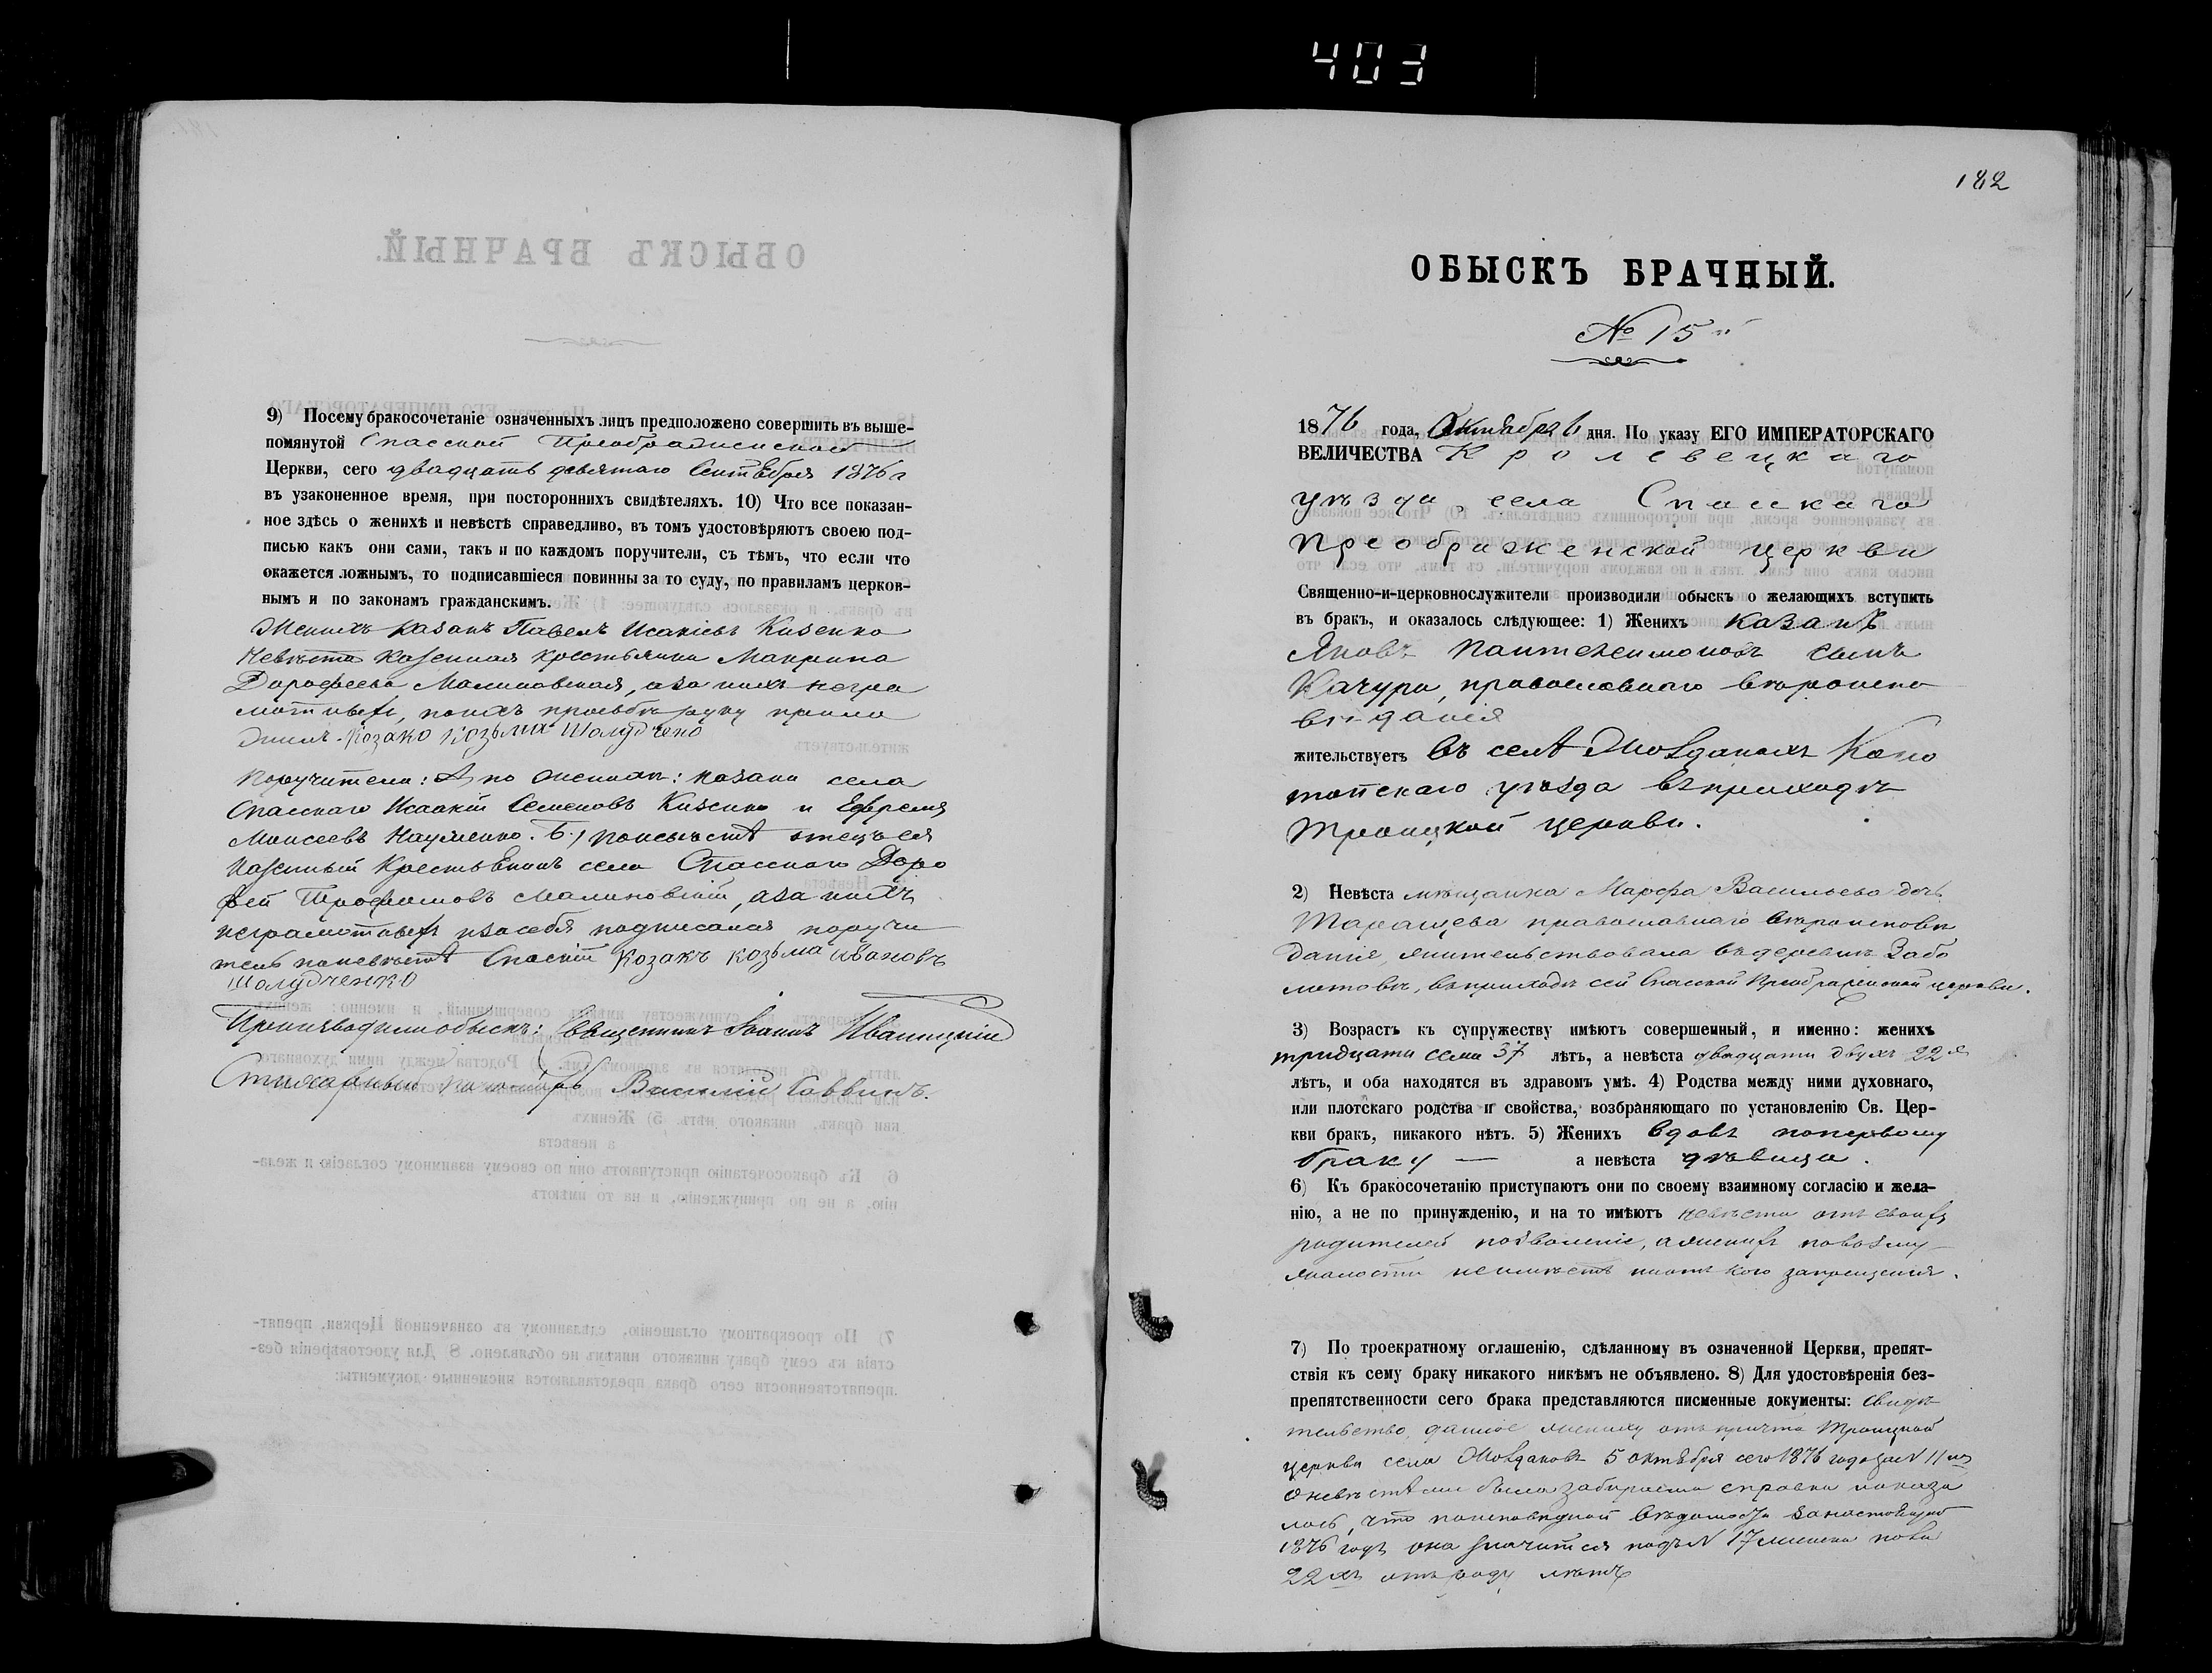 403
9) Посему бракосочетаніе означенныхъ лицъ предположено совершить въ выше-
помянутой Спасской Преображенской
Церкви, сего двадцать девятаго Сентября 1876 г
въ узаконенное время, при постороннихъ свидѣтеляхъ. 10) Что все показан-
ное здѣсь о женихѣ и невѣстѣ справедливо, въ томъ удостовѣряютъ своею под-
писью какъ они сами, такъ и по каждомъ поручители, съ тѣмъ, что если что
окажется ложнымъ, то подписавшіеся повинны за то суду, по правиламъ церков-
нымъ и по законамъ гражданскимъ.
Женихъ казакъ Павелъ Исакіевъ Кизенко
Невѣста казенная крестьянка Макрина
Дорофеева Малиновская, а за нихъ негра
мотныхъ, по ихъ прозьбѣ руку прило
жилъ козакъ Козьма Шолудченко
Поручители: А, по женихѣ: казаки села
Спасскаго Исаакій Семеновъ Кизенко и Ефремъ
Моисеевъ Науменко. Б) по невѣстѣ отецъ ея
казенный крестьянинъ села Спасскаго Доро
фей Трофимовъ Малиновскій, а за нихъ
неграмотныхъ и за себя подписался поручи
тель по невѣстѣ Спаскій козакъ козьма ивановъ
Шолудченко
Производили обыскъ: Священникъ Іоаннъ Иваницкій
Стихарный пономарь Василій Саввичъ.
182
ОБЫСКЪ БРАЧНЫЙ.
№ 15й
1876 года, Октября 6 дня. По указу ЕГО ИМПЕРАТОРСКАГО
ВЕЛИЧЕСТВА Кролевецкаго
уѣзда, села Спаскаго
Преображенской церкви
Священно-и-церковнослужители производили обыскъ о желающихъ вступить
въ бракъ, и оказалось слѣдующее: 1) Женихъ казакъ
Яковъ Пантелеимоновъ сынъ
Качура, православнаго вѣроиспо
вѣданія
жительствуетъ въ селѣ Жолдакахъ Коно
топскаго уѣзда въ приходѣ
Троицкой церкви.
2) Невѣста мѣщанка Марфа Васильева дочь
Таращева православнаго вѣроисповѣ
данія, жительствовала въ деревнѣ Забо
лотовѣ, въ приходѣ сей Спасской Преображенской церкви.
3) Возрастъ къ супружеству имѣютъ совершенный, и именно: женихъ
тридцати семи 37 лѣтъ, а невѣста двадцати двухъ 22х
лѣтъ, и оба находятся въ здравомъ умѣ. 4) Родства между ними духовнаго,
или плотскаго родства и свойства, возбраняющаго по установленію Св. Цер-
кви бракъ, никакого нѣтъ. 5) Женихъ вдовъ по первому
браку — а невѣста дѣвица.
6) Къ бракосочетанію приступаютъ они по своему взаимному согласію и жела-
нію, а не по принужденію, и на то имѣютъ невѣста отъ своихъ
родителей позволеніе, а женихъ по возму
жалости неимѣетъ ни отъ кого запрещенія.
7) По троекратному оглашенію, сдѣланному въ означенной Церкви, препят-
ствія къ сему браку никакого никѣмъ не объявлено. 8) Для удостовѣренія без-
препятственности сего брака представляются писменные документы: свидѣ
тельство, данное жениху отъ причта Троицкой
церкви села Жолдаковъ 5 октября сего 1876 года за N 11 мъ
о невѣстѣ же была забираема справка и оказа
лось, что по исповѣдной вѣдомости за настоящій
1876 годъ она значится подъ N 17
22 хъ отъ роду лѣтъ